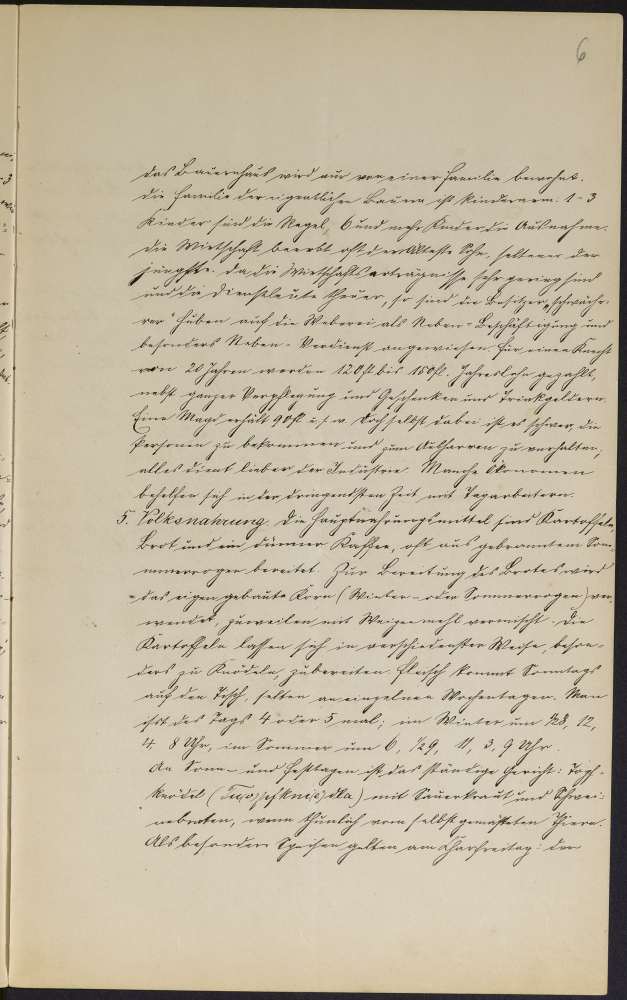 6
das Bauernhaus wird nur von einer Familie bewohnt.
Die Familie der eigentlichen Bauern ist kinderarm. 1-3
Kinder sind die Regel, 6 und mehr Kinder die Ausnahme.
Die Wirtschaft beerbt oft der älteste Sohn, seltener der
jüngste. Da die Wirtschaftserträgnisse sehr gering sind
und die Dienstleute theuer, so sind die Besitzer „schwäche-
rer“ Huben auf die Weberei als Neben-Beschäftigung und
besonders Neben-Verdienst angewiesen. Für einen Knecht
von 20 Jahren werden 120 fl bis 150 fl. Jahreslohn gezahlt,
nebst ganzer Verpflegung und Geschenken und Trinkgeldern.
Eine Magd erhält 90 fl u. s. w. Doch selbst dabei ist es schwer, die
Personen zu bekommen und zum Ausharren zu verhalten,
alles dient lieber der Industrie. Manche Ökonomen
behelfen sich in der dringendsten Zeit mit Tagarbeitern.
5. Volksnahrung. Die Hauptnahrungsmittel sind Kartoffeln,
Brot und ein dünner Kaffee, oft aus gebranntem Som-
merroggen bereitet. Zur Bereitung des Brotes wird
das eigen gebaute Korn (Winter- oder Sommerroggen) ver-
wendet, zuweilen mit Weizenmehl vermischt. Die
Kartoffeln lassen sich in verschiedenster Weise, beson-
ders zu Knödeln, zubereiten. Fleisch kommt Sonntags
auf den Tisch, selten an einzelnen Wochentagen. Man
ißt des Tags 4 oder 5 mal; im Winter um 1/28, 12,
4, 8 Uhr, im Sommer um 6, 1/29, 11, 3, 9 Uhr.
An Sonn- und Festtagen ist das ständige Gericht: Topf-
knödel mit Sauerkraut und Schwei-
nebraten, wenn thunlich vom selbst gemästeten Thiere.
Als besondere Speisen gelten am Charfreitag: der